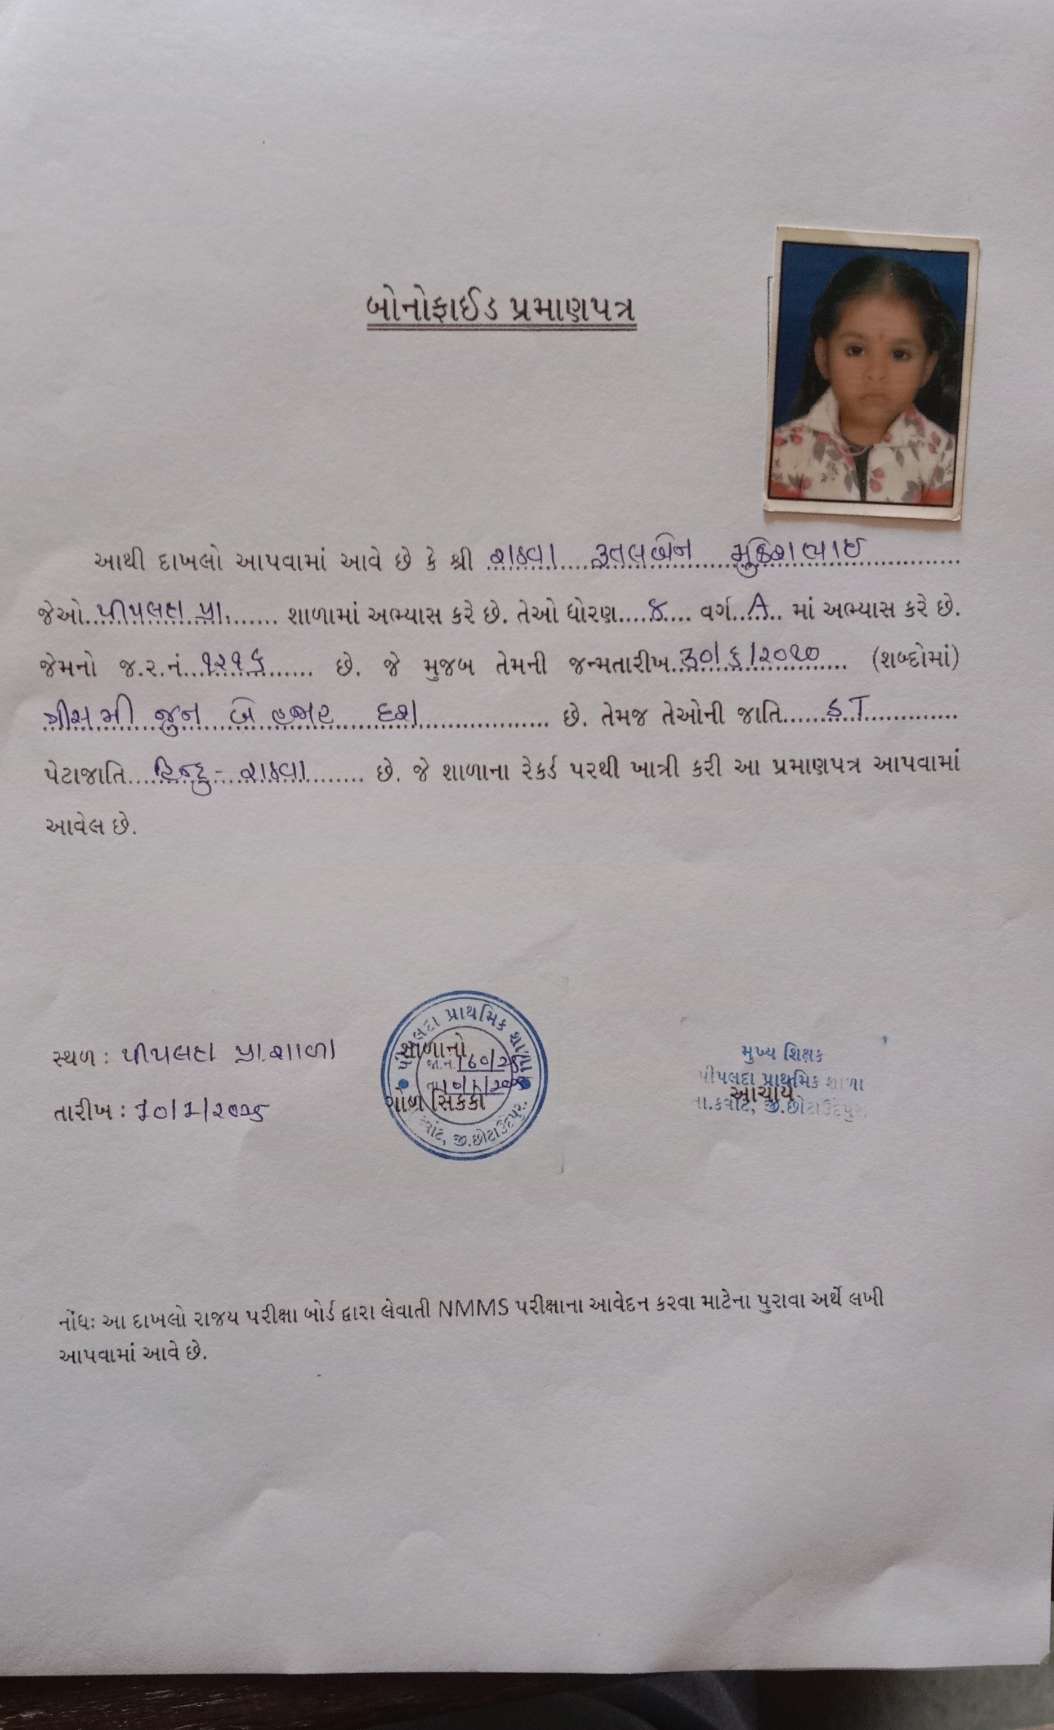 બોનોફાઈડ પ્રમાણપત્ર
આથી દાખલો આપવામાં આવે છે કે શ્રી રાઠવા રૂતલબેન મુકેશભાઈ
જેઓ..પીપલદા પ્રા....... શાળામાં અભ્યાસ કરે છે. તેઓ ધોરણ....૪.... વર્ગ..A.. માં અભ્યાસ કરે છે.
જેમનો જ.ર.નં...૧૨૧૬...... છે. જે મુજબ તેમની જન્મતારીખ..30/6/૨૦૧૦.... (શબ્દોમાં)
ત્રીસ મી જુન બે હજાર દશ................ છે. તેમજ તેઓની જાતિ......ST............
પેટાજાતિ....હિન્દુ - રાઠવા........ છે. જે શાળાના રેકર્ડ પરથી ખાત્રી કરી આ પ્રમાણપત્ર આપવામાં
આવેલ છે.
સ્થળ : પીપલદા પ્રા.શાળા
તારીખ : 10/1/૨૦૨
પીપલદા પ્રાથમિક શાળા
શાળાનો
જા.નં.
ગોળ સિકકો
કવાંટ, જી.છોટાઉદેપુર.
મુખ્ય શિક્ષક
પીપલદા પ્રાથમિક શાળા
આચાર્ય
તા.કવાંટ, જી.છોટાઉદેપુર
નોંધઃ આ દાખલો રાજય પરીક્ષા બોર્ડ દ્વારા લેવાતી NMMS પરીક્ષાના આવેદન કરવા માટેના પુરાવા અર્થે લખી
આપવામાં આવે છે.